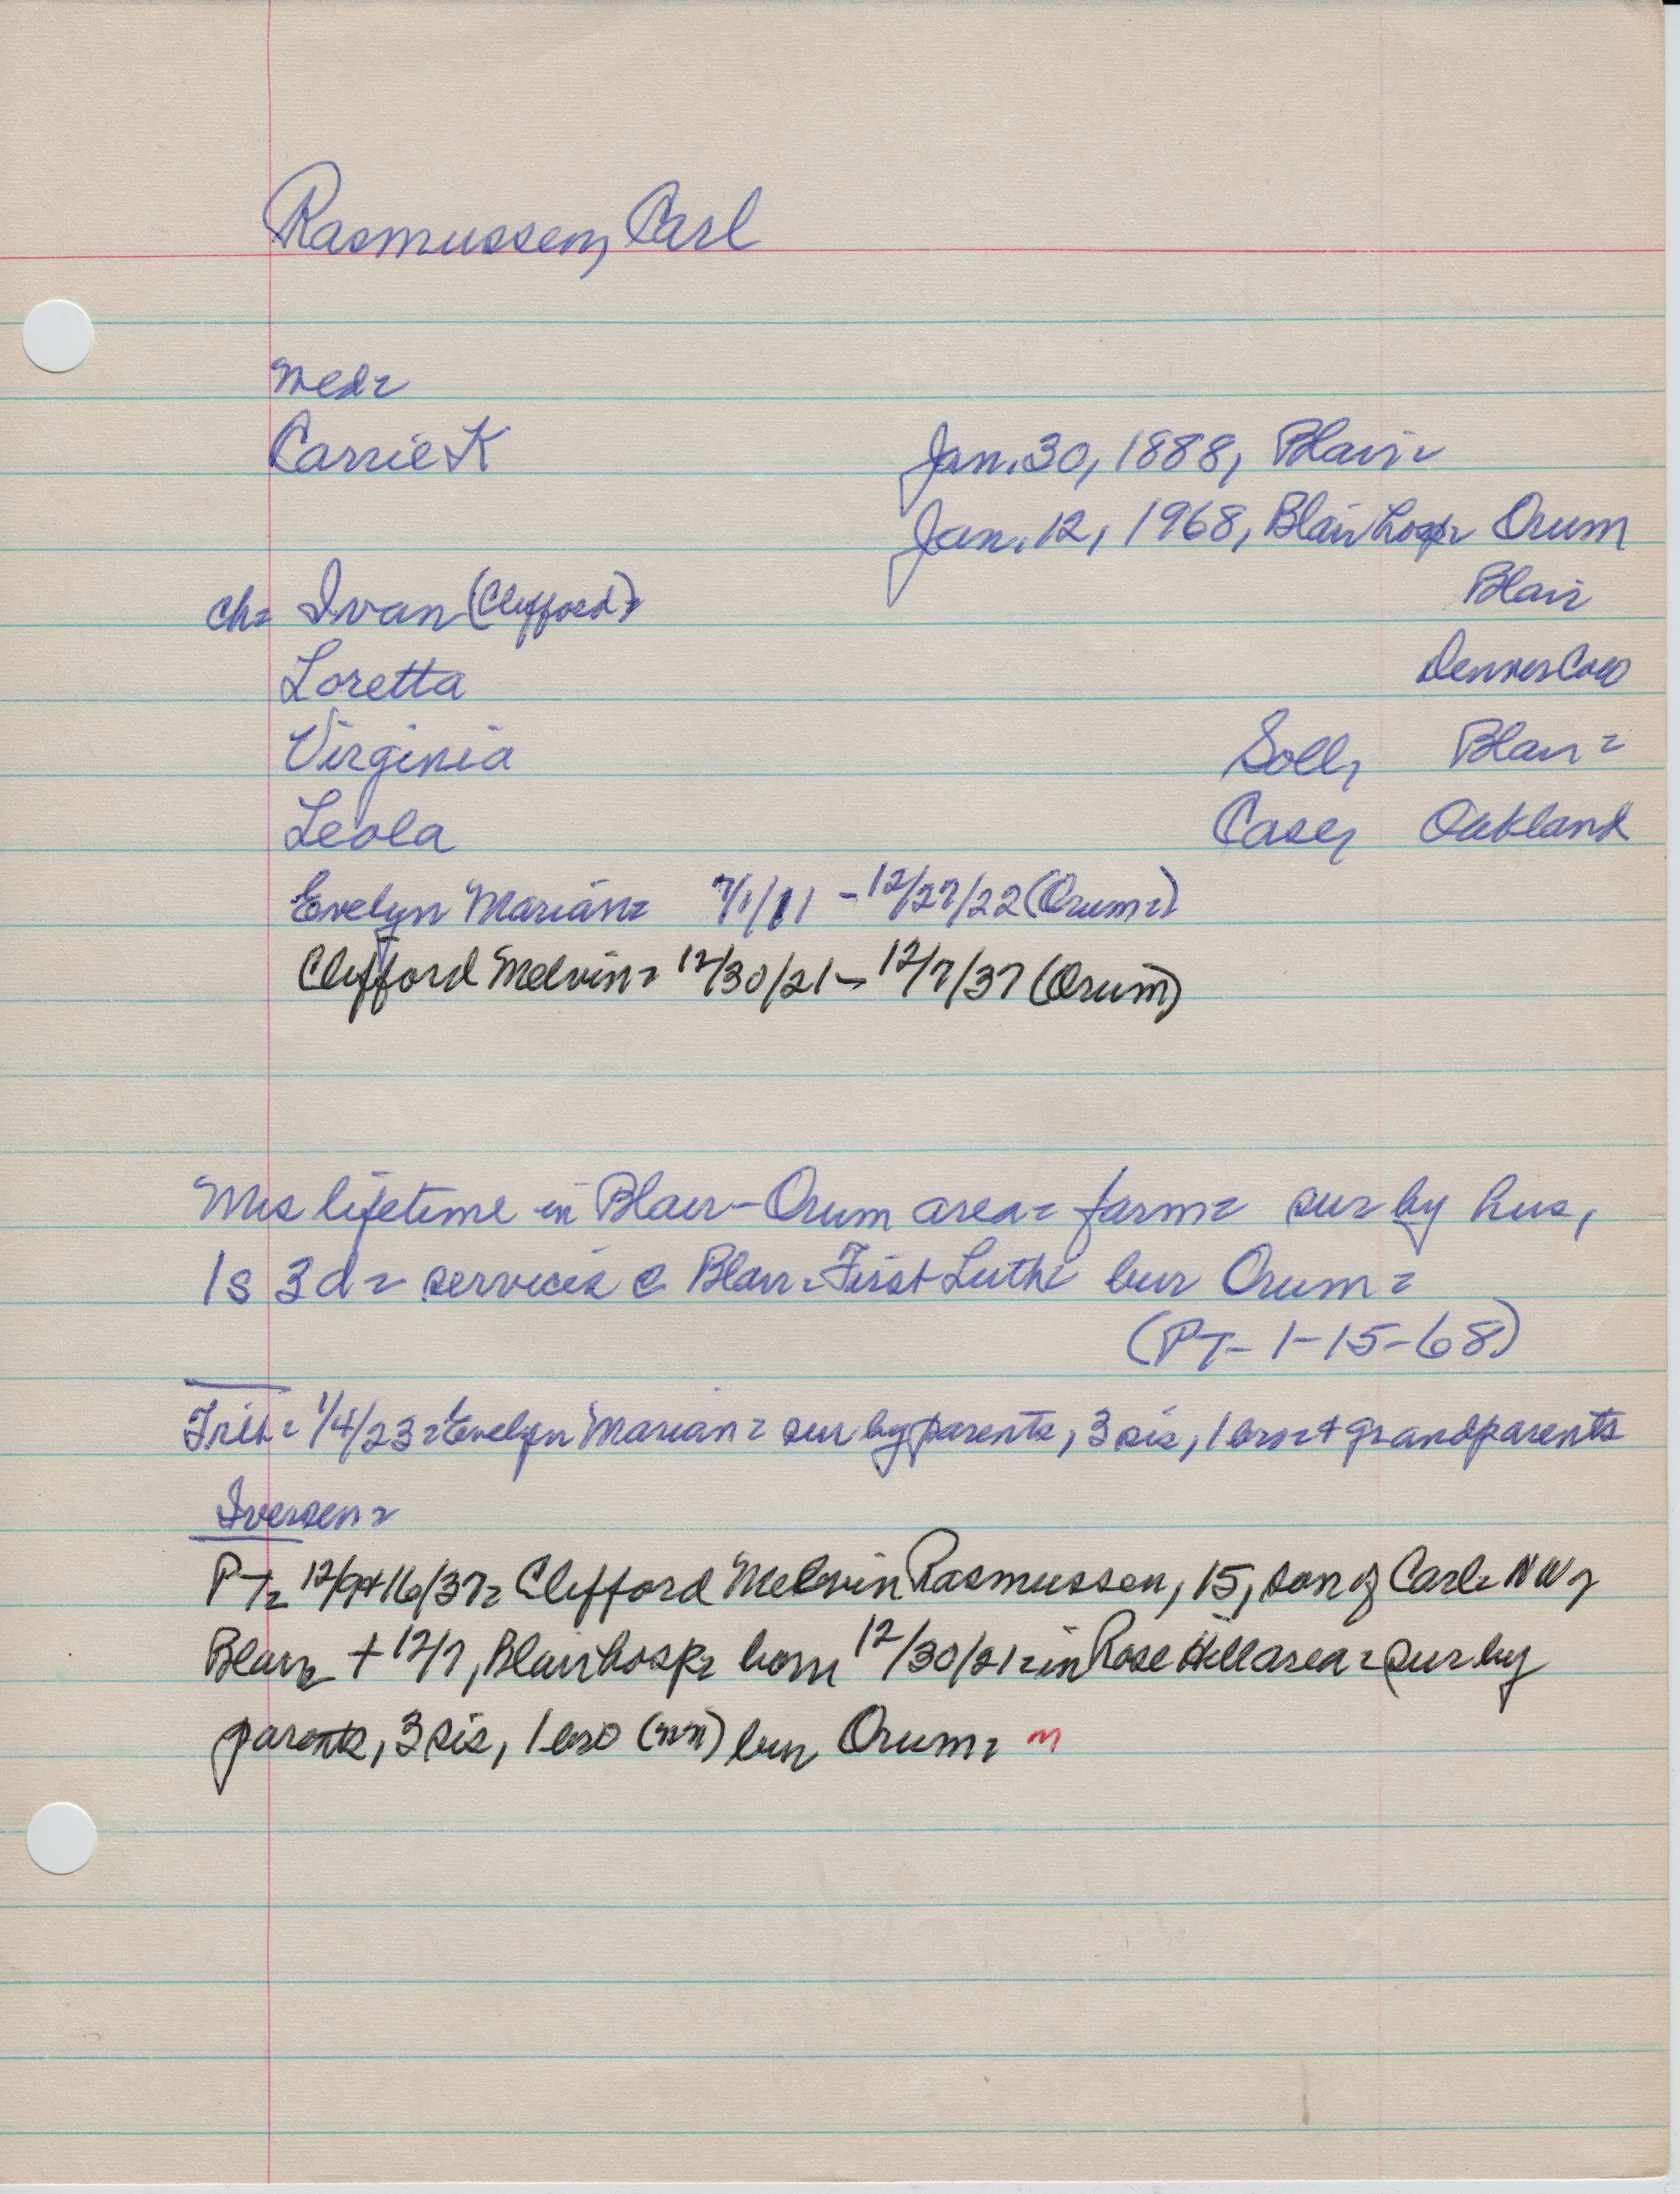 Rasmussen, Carl
Med=
Carrie K Jan. 30, 1888, Blair=
Jan. 12, 1968, Blair hosp= Orum
ch= Ivan (Clifford)= Blair
Loretta Denver Colo
Virginia Soll, Blair=
Leola Case, Oakland
Evelyn Marian= 7/1/11 - 12/27/22 (Orum=)
Clifford Melvin= 12/30/21 - 12/7/37 (Orum)
Mrs lifetime in Blair-Orum area= farm= sur by hus,
1s 3d= services @ Blair=First Luth= bur Orum=
(PT- 1-15-68)
Trib= 1/4/23=Evelyn Marian= sur by parents, 3 sis, 1 bro=+ grandparents
Iversen=
PT= 12/9+16/37= Clifford Melvin Rasmussen, 15, son of Carl= NW=
Blair= + 12/7, Blair hosp= born 12/30/21=in Rose Hill area= sur by
parents, 3 sis, 1 bro (nn) bur Orum= m